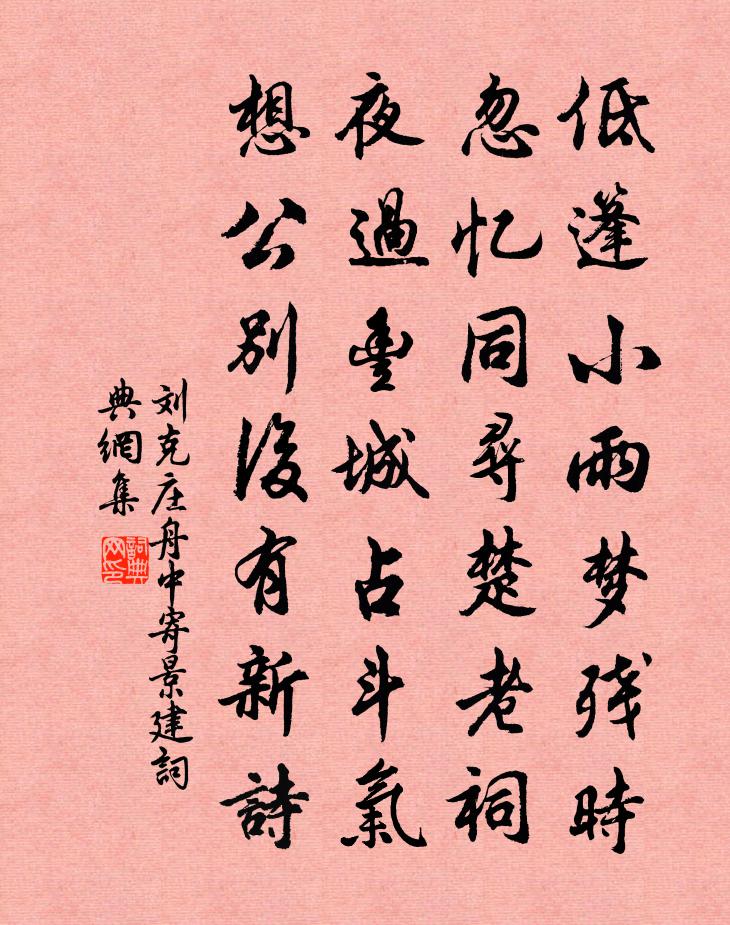 低篷小雨梦残時
忽忆同尋楚老祠
夜過豊城占斗氣
想公别後有新詩
刘克庄舟中寄景建詞
典網集
詞典网印